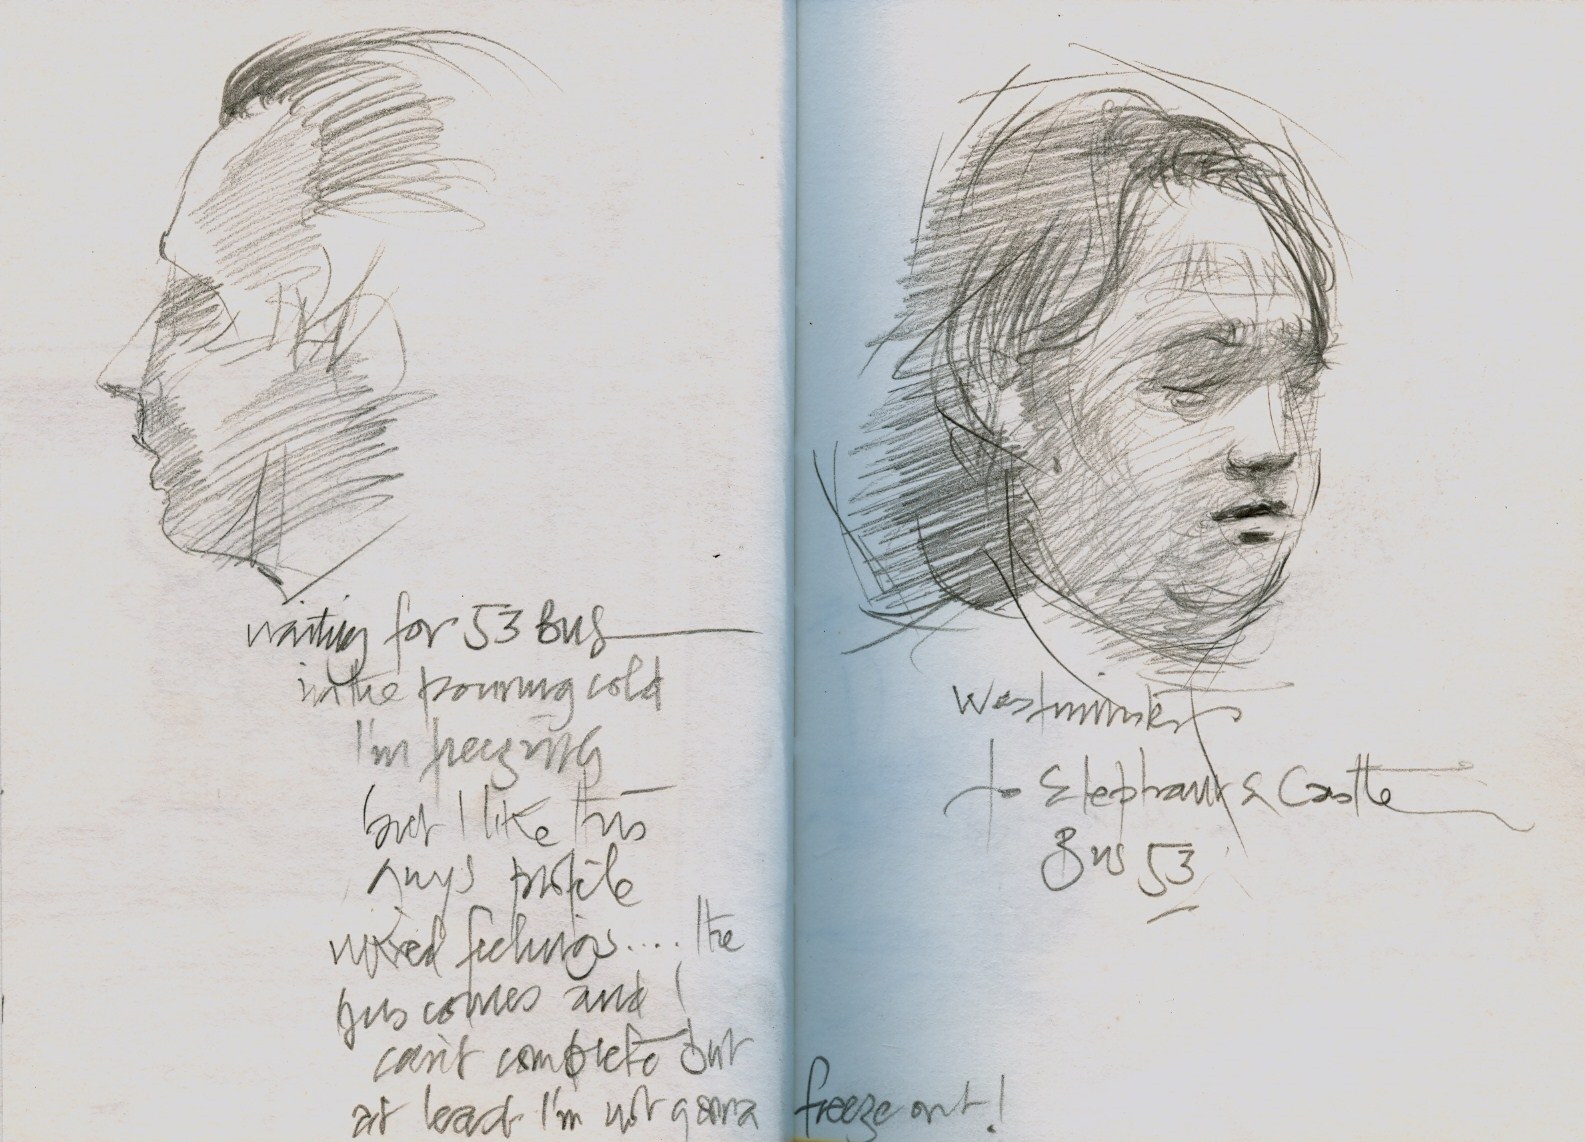 waiting for 53 Bus
in the pouring cold
I'm freezing
but I like this
guy's profile
mixed feelings.... the
bus comes and I
can't complete but
at least I'm not gonna freeze out!
Westminster
to Elephant & Castle
Bus 53